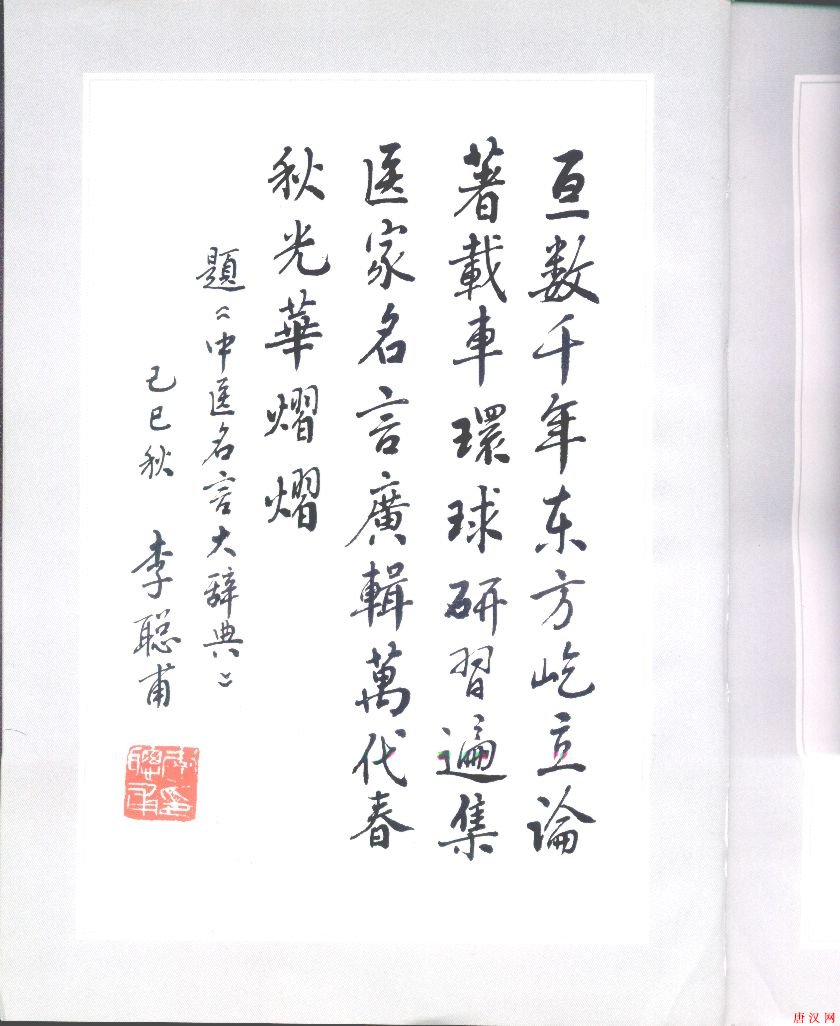 亘数千年东方屹立論
著載車環球研習遍集
医家名言廣輯萬代春
秋光華熠熠
題《中医名言大辞典》
己巳秋 李聪甫
唐汉网